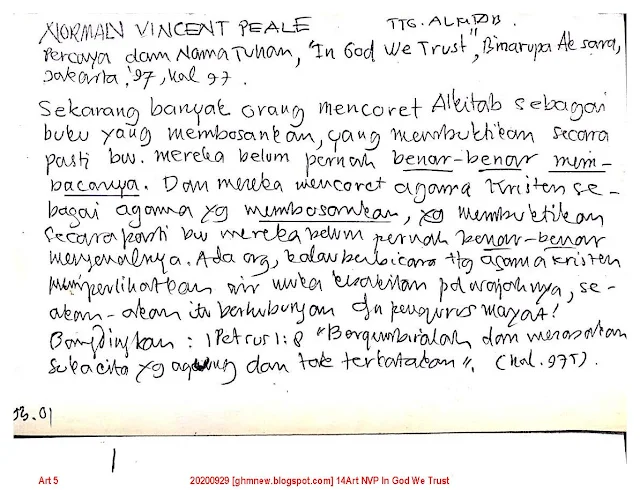 NORMAN VINCENT PEALE TTG. ALKITAB.
Percaya dam Nama Tuhan, "In God We Trust", Binarupa Aksara,
Jakarta, '97, hal 97.
Sekarang banyak orang mencoret Alkitab sebagai
buku yang membosankan, yang membuktikan secara
pasti bw. mereka belum pernah benar-benar mem-
bacanya. Dan mereka mencoret agama Kristen se-
bagai agama yg membosankan, yg membuktikan
secara pasti bw mereka belum pernah benar-benar
mengenalnya. Ada org, kalau berbicara ttg agama Kristen
memperlihatkan air muka kesakitan pd wajahnya, se-
akan-akan itu berhubungan dn pengurus mayat!
Bandingkan : 1 Petrus 1:8 "Bergembiralah dan merasakan
sukacita yg agung dan tak terkatakan". (hal. 975).
13.01
Art 5 20200929 [ghmnew.blogspot.com] 14Art NVP In God We Trust